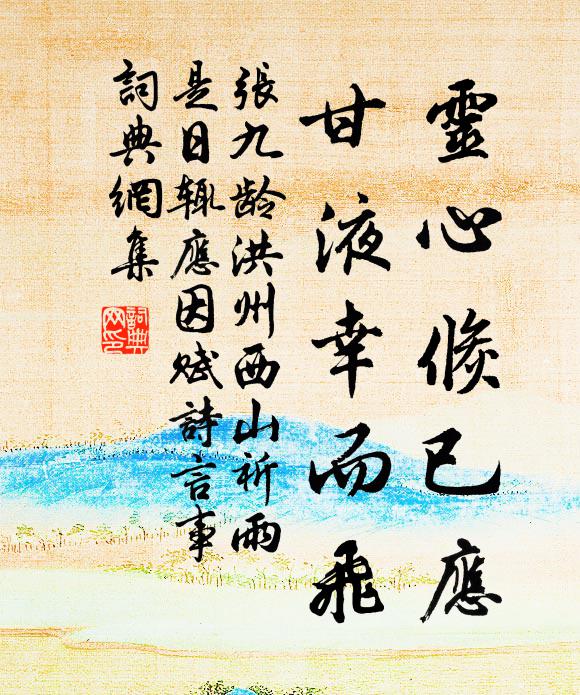 靈心倏已應
甘液幸而飛
張九齡洪州西山祈雨
是日輒應因賦詩言事
詞典網集
詞典网印